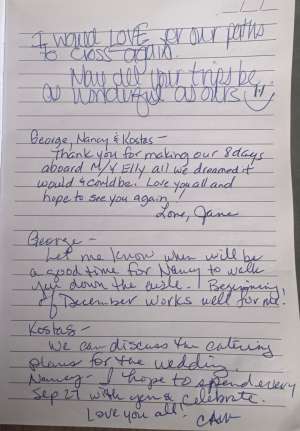 I would LOVE for our paths
to cross again.
May all your trips be
as wonderful as ours
George, Nancy & Kostas –
Thank you for making our 8 days
aboard M/V Elly all we dreamed it
would & could be. Love you all and
hope to see you again!
Love, Jane
George –
Let me know when will be
a good time for Nancy to walk
you down the aisle. Beginning
of December works well for me!
Kostas –
We can discuss the catering
plans for the wedding.
Nancy – I hope to spend every
Sep 27 with you & celebrate.
Love you all!